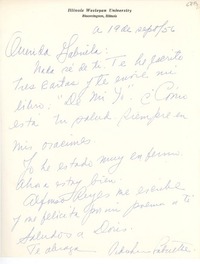 Illinois Wesleyan University
Bloomington, Illinois
a 19 de sept/56
Querida Gabriela:
Nada sé de ti. Te he escrito
tres cartas y te envié mi
libro: "De Mi Yo". ¿Cómo
está tu salud? Siempre en
mis oraciones.
Yo he estado muy enferma
Ahora estoy bien.
Alfonso Reyes me escribe
y me felicita por mi poema a ti
Saludos a Doris.
Te abraza